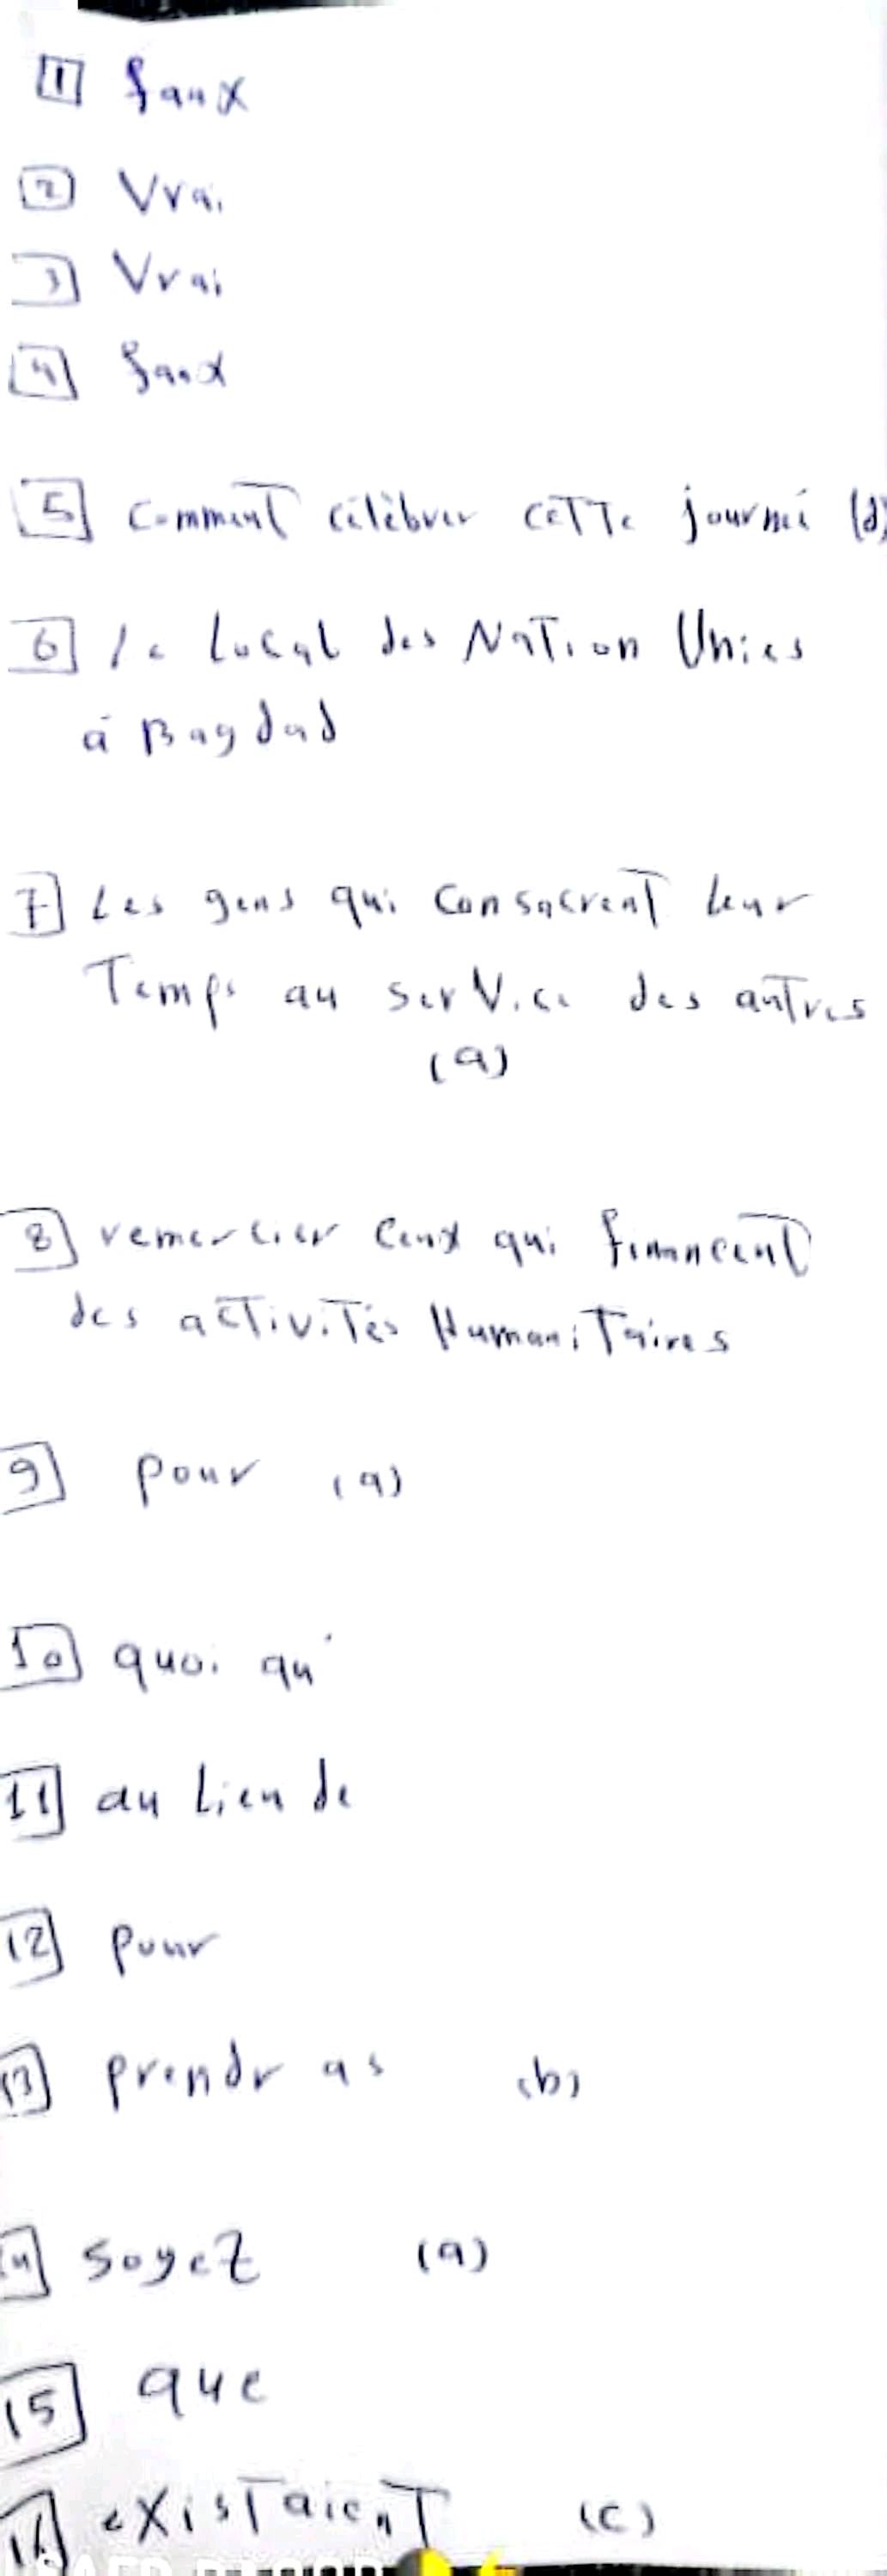 1 faux
2 Vrai
3 Vrai
4 faux
5 Comment célébrer cette journé (d)
6 le Local des Nation Unies
à Bagdad
7 Les gens qui consacrent leur
Temps au service des autres
(a)
8 remercier ceux qui financent
des activités Humanitaires
9 pour (a)
10 quoi qu'
11 au Lieu de
12 pour
13 prendras (b)
14 soyez (a)
15 que
16 existaient (c)